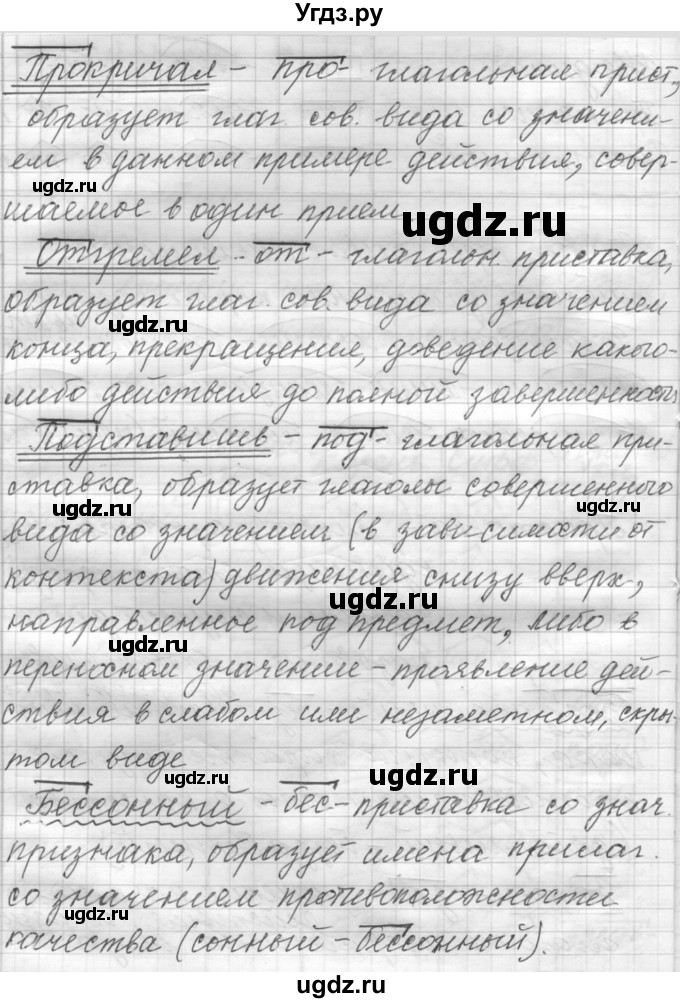 Угдз.ру
Прокричал – про- глагольная прист.,
образует глаг. сов. вида со значени-
ем в данном примере действия, совер-
шаемое в один прием
Отгремел - от - глагольн приставка,
образует глаг. сов. вида со значением
конца, прекращения, доведение какого-
либо действия до полной завершенности
Подставишь – под - глагольная при-
ставка, образует глаголы совершенного
вида со значением (в зависимости от
контекста) движения снизу вверх,
направленное под предмет, либо в
переносном значение – проявление дей-
ствия в слабом или незаметном, скры-
том виде
Бессонный - бес- приставка со знач.
признака, образует имена прилаг.
со значением противоположности
качества (сонный – бессонный).
ugdz.ru
ugdz.ru
ugdz.ru
ugdz.ru
ugdz.ru
ugdz.ru
ugdz.ru
ugdz.ru
ugdz.ru
ugdz.ru
ugdz.ru